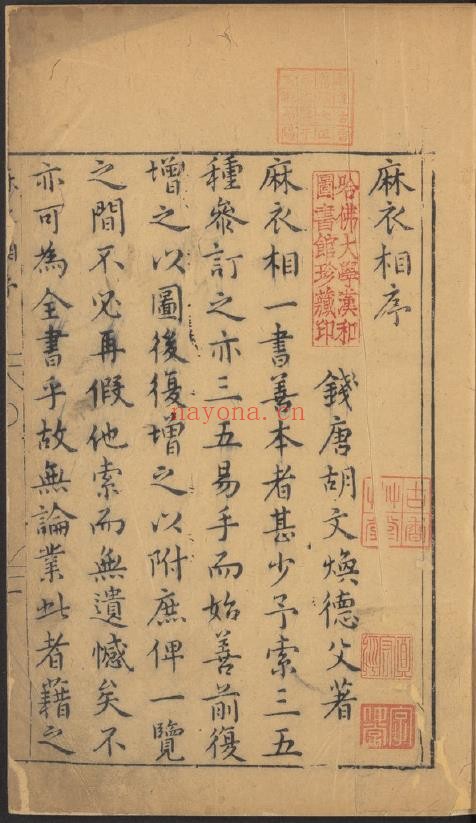 麻衣相序
哈佛大學漢和
圖書館珍藏印
錢唐胡文煥德父著
麻衣相一書善本者甚少予索三五
種參訂之亦三五易手而始善前復
增之以圖後復增之以附庶俾一覽
之間不必再假他索而無遺憾矣不
亦可為全書乎故無論業此者藉之
nayona.cn